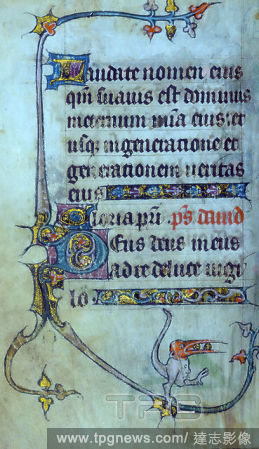 Laudate nomen eius
qm̄ suauis est dominus
ineternum mīa eius: et
usq; ingeneratione et
generationem ueritas
eius
Gloria pr̄i p̄s dauid
Deus deus meus
ad te deluce uigi
lo
TPG
www.tpgnews.com/ 達志影像